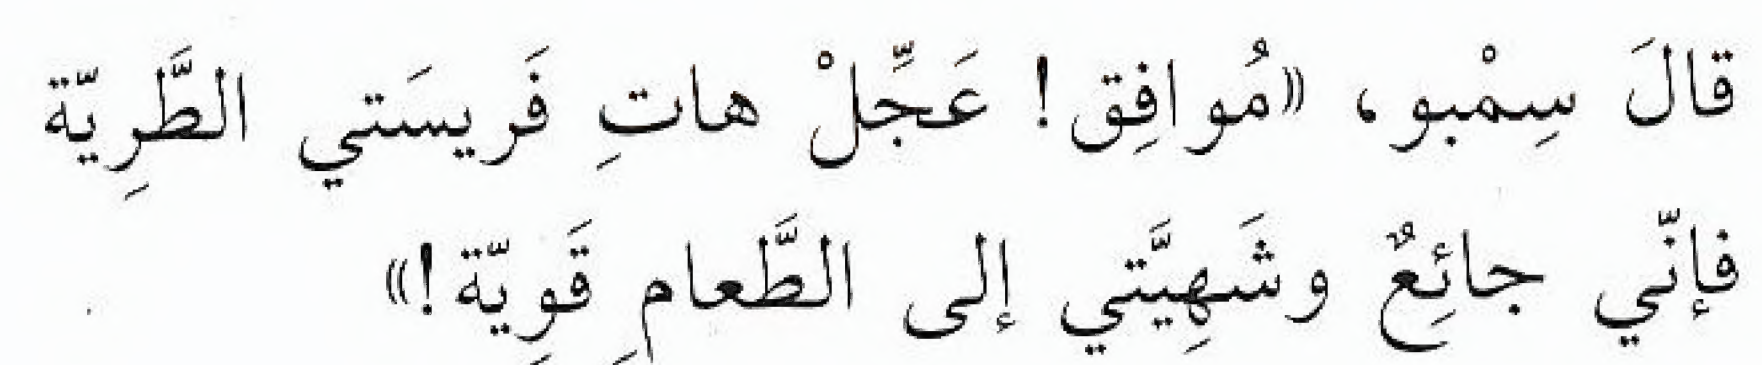 قالَ سِمْبو، «مُوافِق! عَجِّلْ هاتِ فَريسَتي الطَّرِيّة
فإنّي جائِعٌ وشَهِيَّتي إلى الطَّعامِ قَوِيّة!»